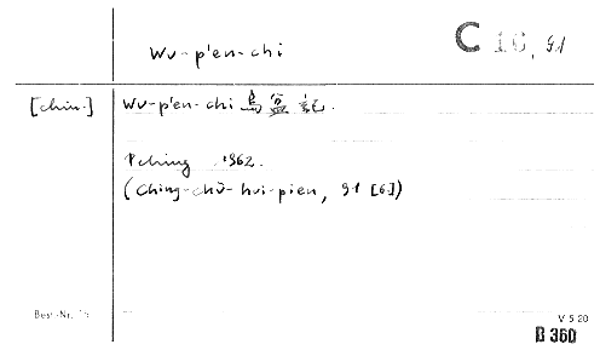 Wu-p'en-chi
C 16, 91
[chin.] Wu-p'en-chi 烏盆記.
Peking 1962.
(Ching-chü-hui-pien, 91 [6])
Best.-Nr.
V 5 20
B 360